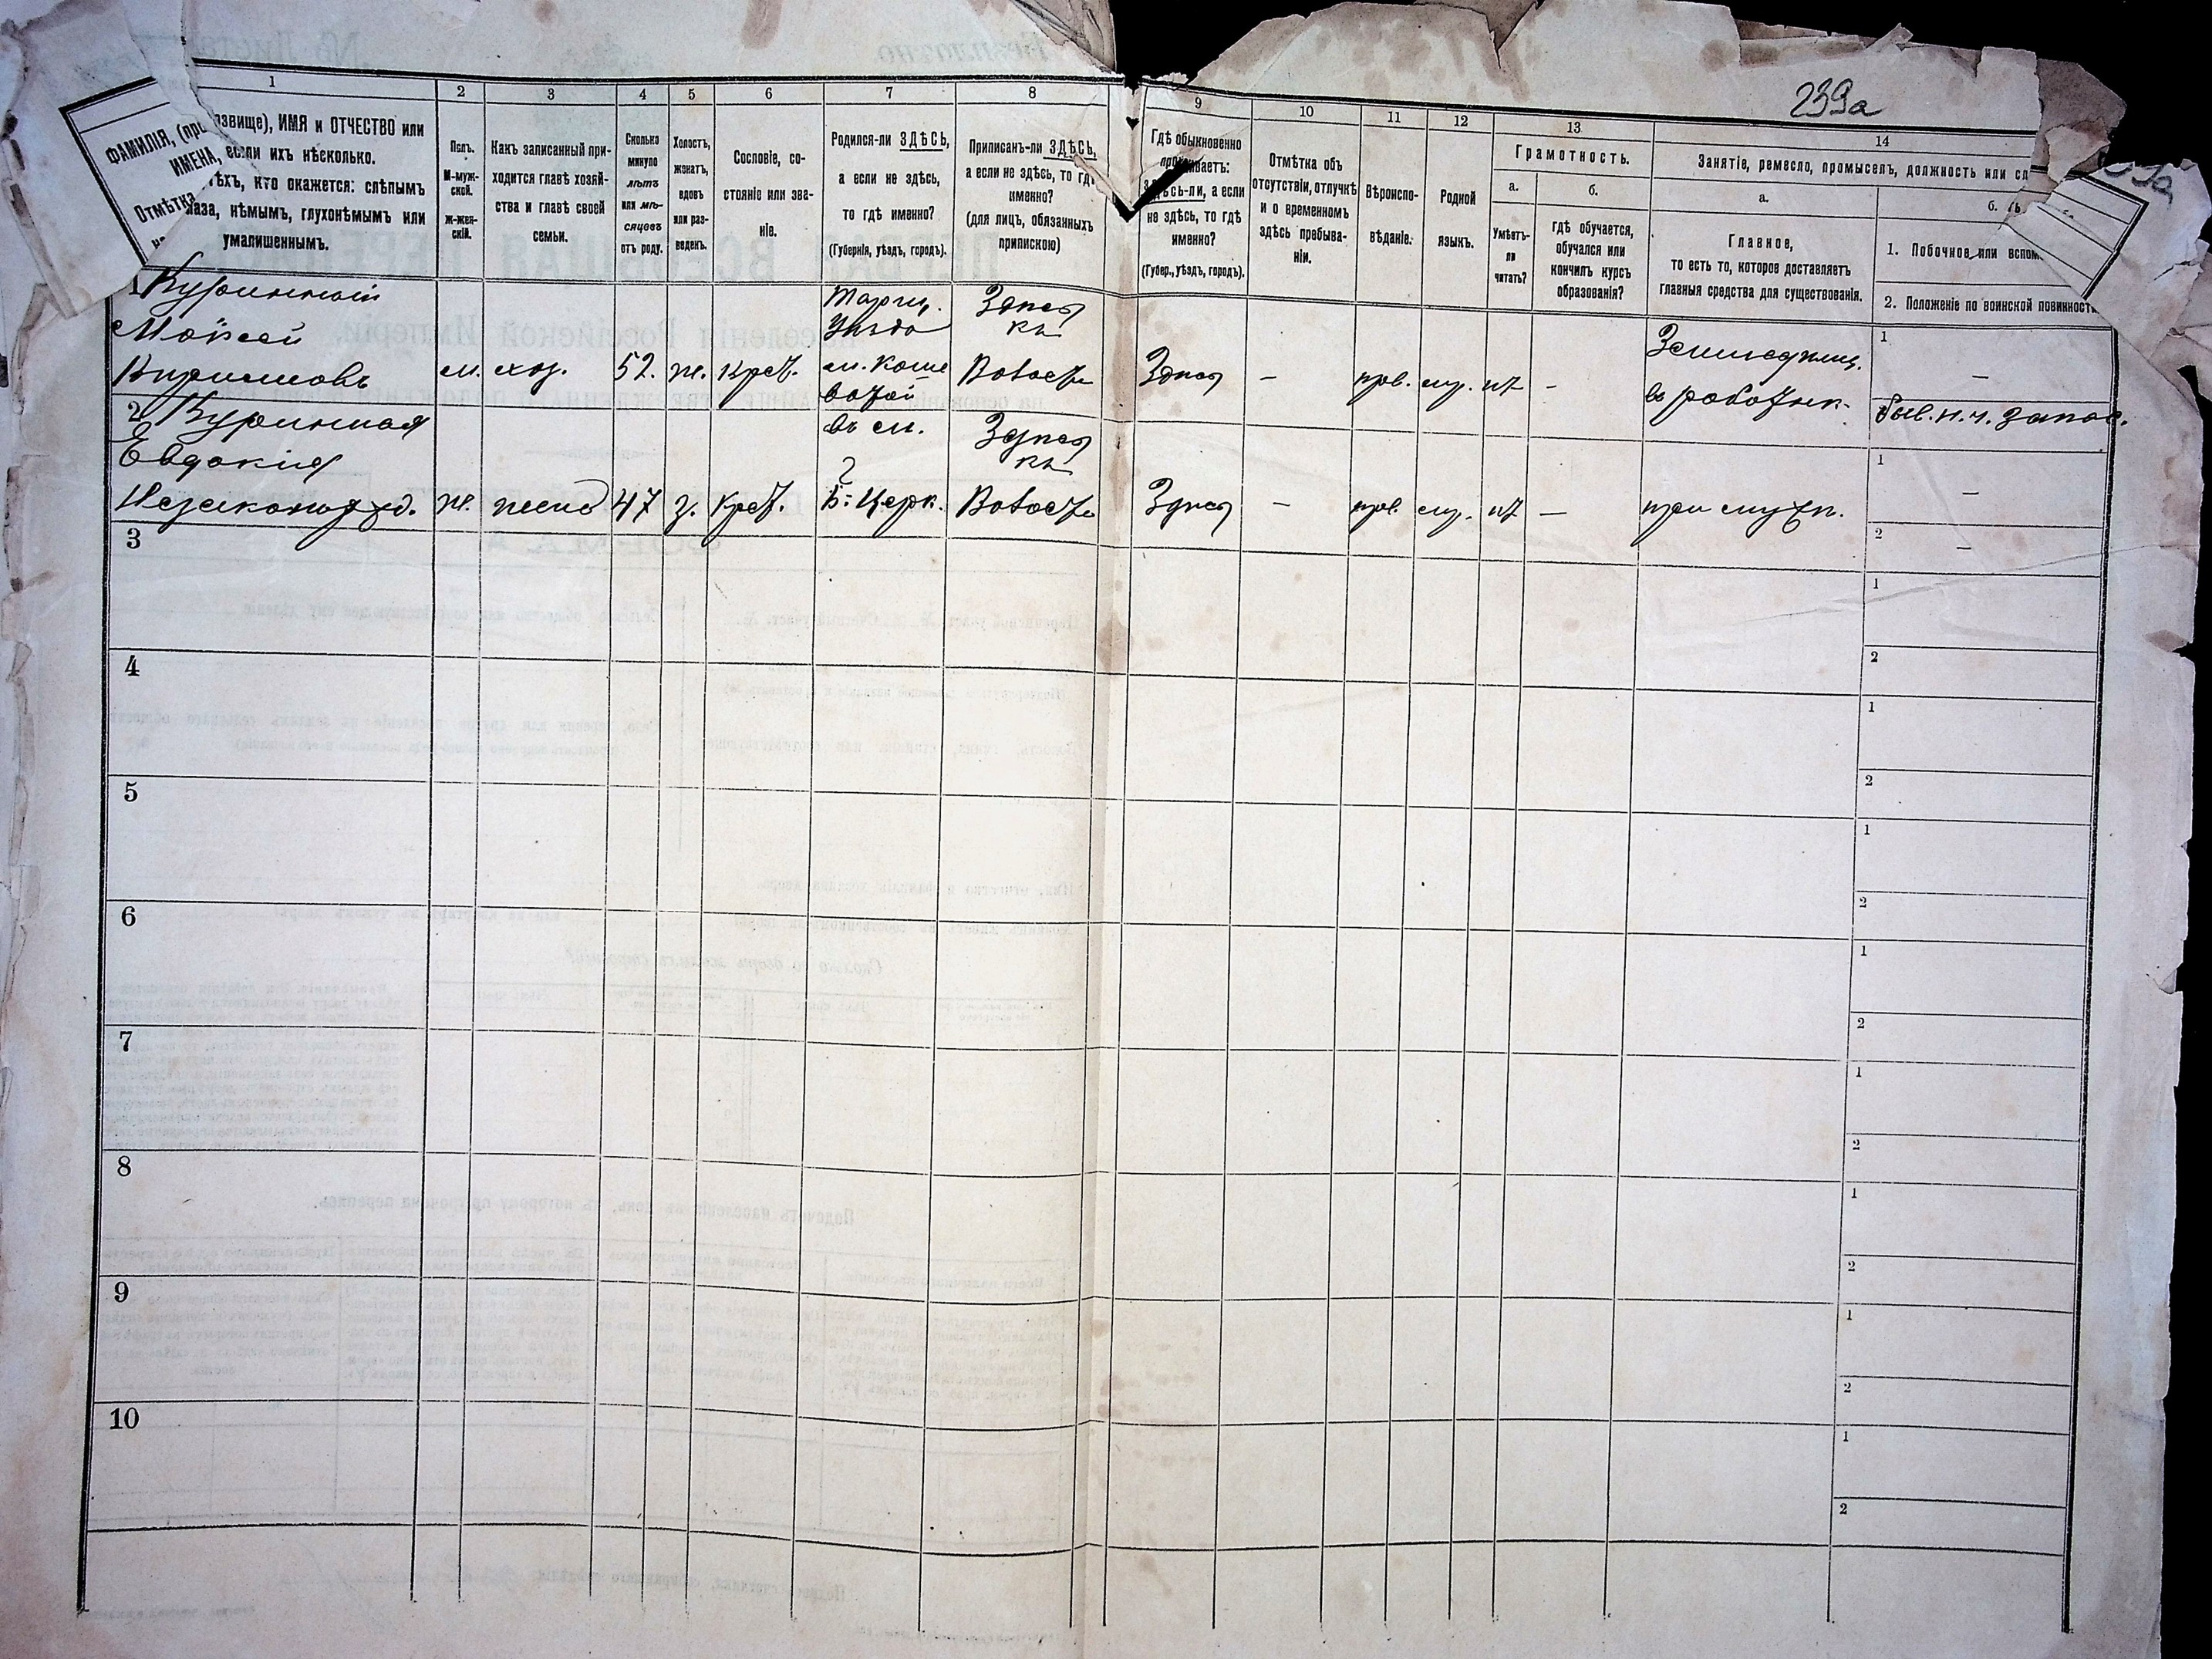 239а
1 2 3 4 5 6 7 8 9 10 11 12 13 14
ФАМИЛІЯ, (про звище), ИМЯ и ОТЧЕСТВО или
ИМЕНА, если ихъ нѣсколько.
Отмѣтка тѣхъ, кто окажется: слѣпымъ
лаза, нѣмымъ, глухонѣмымъ или
умалишеннымъ.
Полъ.
М-муж-
ской.
Ж-жен-
скій.
Какъ записанный при-
ходится главѣ хозяй-
ства и главѣ своей
семьи.
Сколько
минуло
лѣтъ
или мѣ-
сяцевъ
отъ роду.
Холостъ,
женатъ,
вдовъ
или раз-
веденъ.
Сословіе, со-
стояніе или зва-
ніе.
Родился-ли ЗДѢСЬ,
а если не здѣсь,
то гдѣ именно?
(Губернія, уѣздъ, городъ).
Приписанъ-ли ЗДѢСЬ,
а если не здѣсь, то гдѣ
именно?
(для лицъ, обязанныхъ
припискою)
Гдѣ обыкновенно
проживаетъ:
здѣсь-ли, а если
не здѣсь, то гдѣ
именно?
(Губер., уѣздъ, городъ).
Отмѣтка объ
отсутствіи, отлучкѣ
и о временномъ
здѣсь пребыва-
ніи.
Вѣроиспо-
вѣданіе.
Родной
языкъ.
Грамотность.
а.
Умѣетъ-
ли
читать?
б.
гдѣ обучается,
обучался или
кончилъ курсъ
образованія?
Занятіе, ремесло, промыселъ, должность или сл
а.
Главное,
то есть то, которое доставляетъ
главныя средства для существованія.
б.
1. Побочное или вспом
2. Положеніе по воинской повинности
1 Куринный
Мойсей
Кириловъ
м. хоз. 52. ж. Крест.
Таращ.
Уѣзда
м. Коше
ватой
Здѣсь
Здѣсь –
прав. мр. нѣт –
Земледѣлец.
въ работник.
1 –
быв. н. ч. запас.
2 Куринная
Евдокія
Незаконорожд.
ж. жена 47 з. Крест.
въ м.
Б: Церк.
Здѣсь
Здѣсь –
прав. мр. нѣт –
при мужѣ.
1 –
2 –
3
1
2
4
1
2
5
1
2
6
1
2
7
1
2
8
1
2
9
1
2
10
1
2